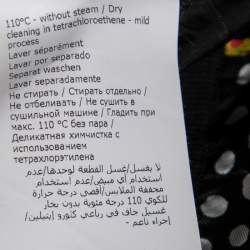 110°C - without steam / Dry
cleaning in tetrachloroethene - mild
process
Laver séparément
Lavar por separado
Separat waschen
Lavar separadamente
Не стирать / Стирать отдельно /
Не отбеливать / Не сушить в
сушильной машине / Гладить при
макс. 110 °C без пара /
Деликатная химчистка с
использованием
тетрахлорэтилена
لا يغسل/غسل القطعة لوحدها/عدم
استخدام أي مبيض/عدم استخدام
مجففة الملابس/أقصى درجة حرارة
للكوي 110 درجة مئوية بدون بخار
/غسيل جاف في رباعي كلورو إيثيلين
إجراء ناعم -